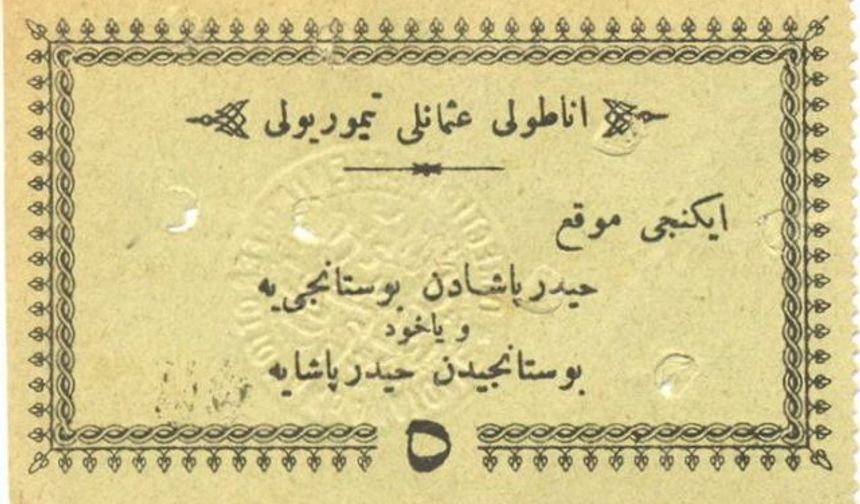 اناطولی عثمانلی تیموریولی
ایكنجی موقع
حیدرپاشادن بوستانجی‌یه
و یاخود
بوستانجیدن حیدرپاشایه
٥